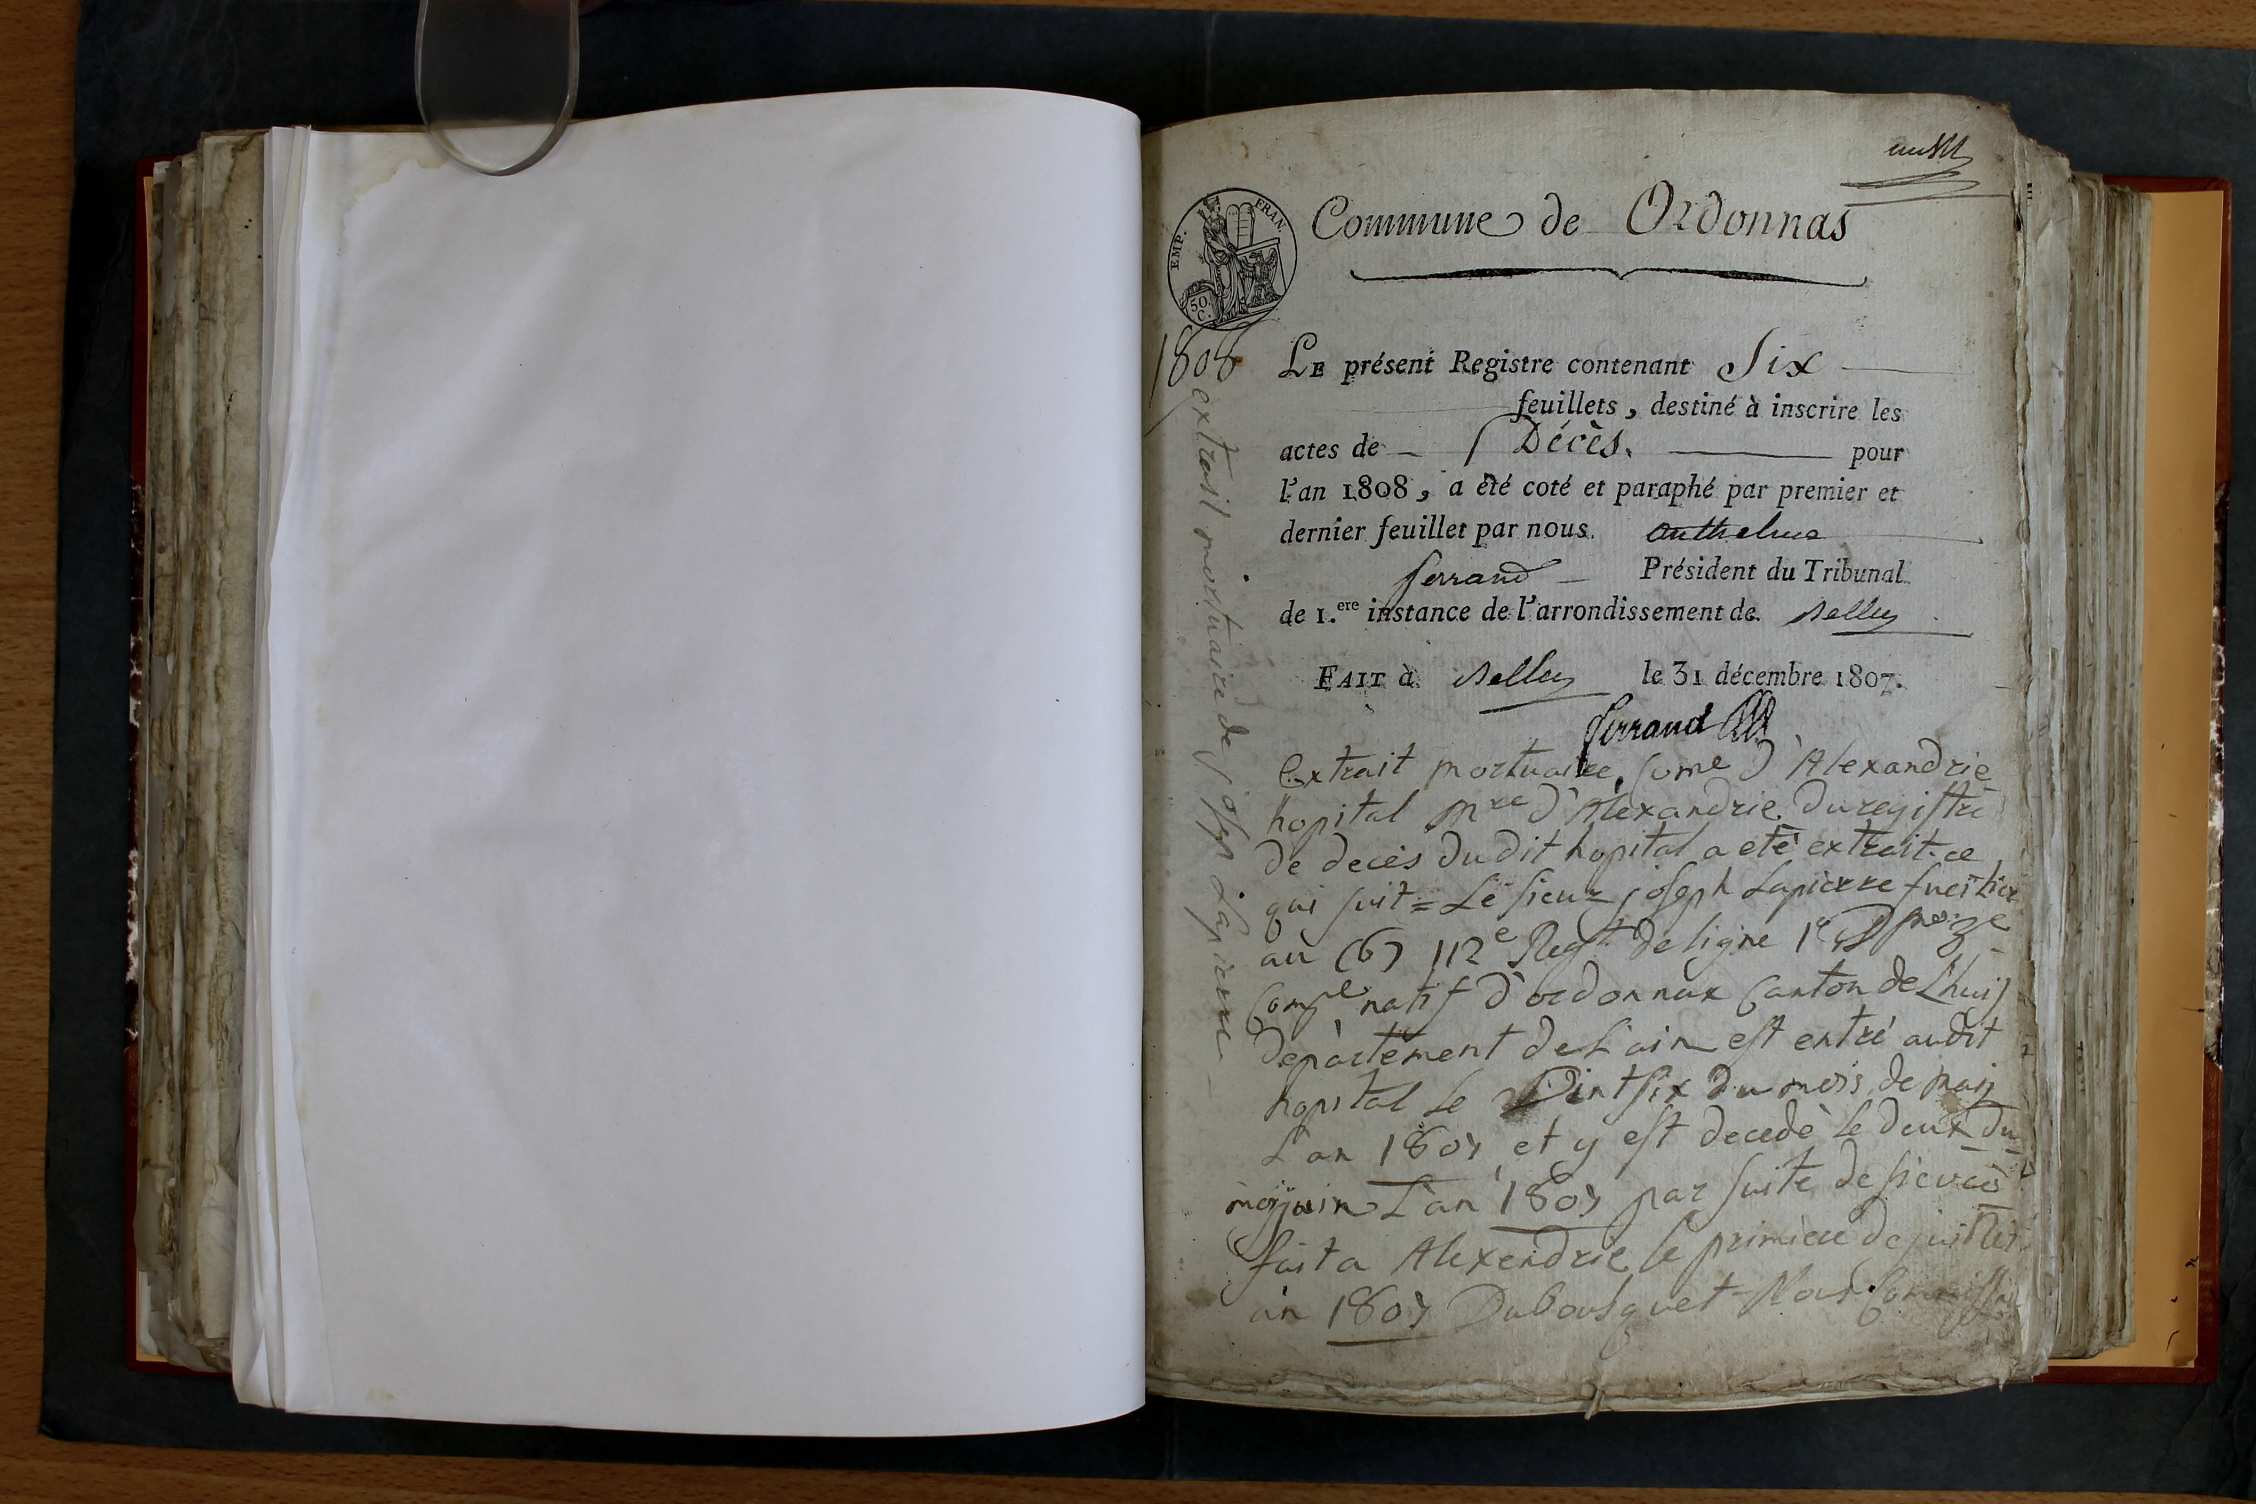 EMP. FRAN.
50. C.
Commune de Ordonnas
1808
extrait mortuaire de joseph Lapierre
LE présent Registre contenant Six
feuillets, destiné à inscrire les
actes de Décès. pour
l'an 1808, a été coté et paraphé par premier et
dernier feuillet par nous. anthelme
ferrand Président du Tribunal
de 1.ere instance de l'arrondissement de. Belley
FAIT à Belley le 31 décembre 1807.
ferrand
Extrait mortuaire, come d'Alexandrie
hopital mre d'Alexandrie du registre
de decès du dit hopital a eté extrait ce
qui suit = Le sieur joseph Lapierre fueillier
au (6) 112e Regt de ligne 1e
Compe natif d'ordonnax Canton de Lhuij
Département de L'ain est entré audit
hopital le Vint six du mois de maij
L'an 1807 et y est decedé le deux du
moij juin L'an 1807 par suite de fievre
fait a Alexendrie le primiere de juillet
an 1807 Dubousquet Nous Commissa